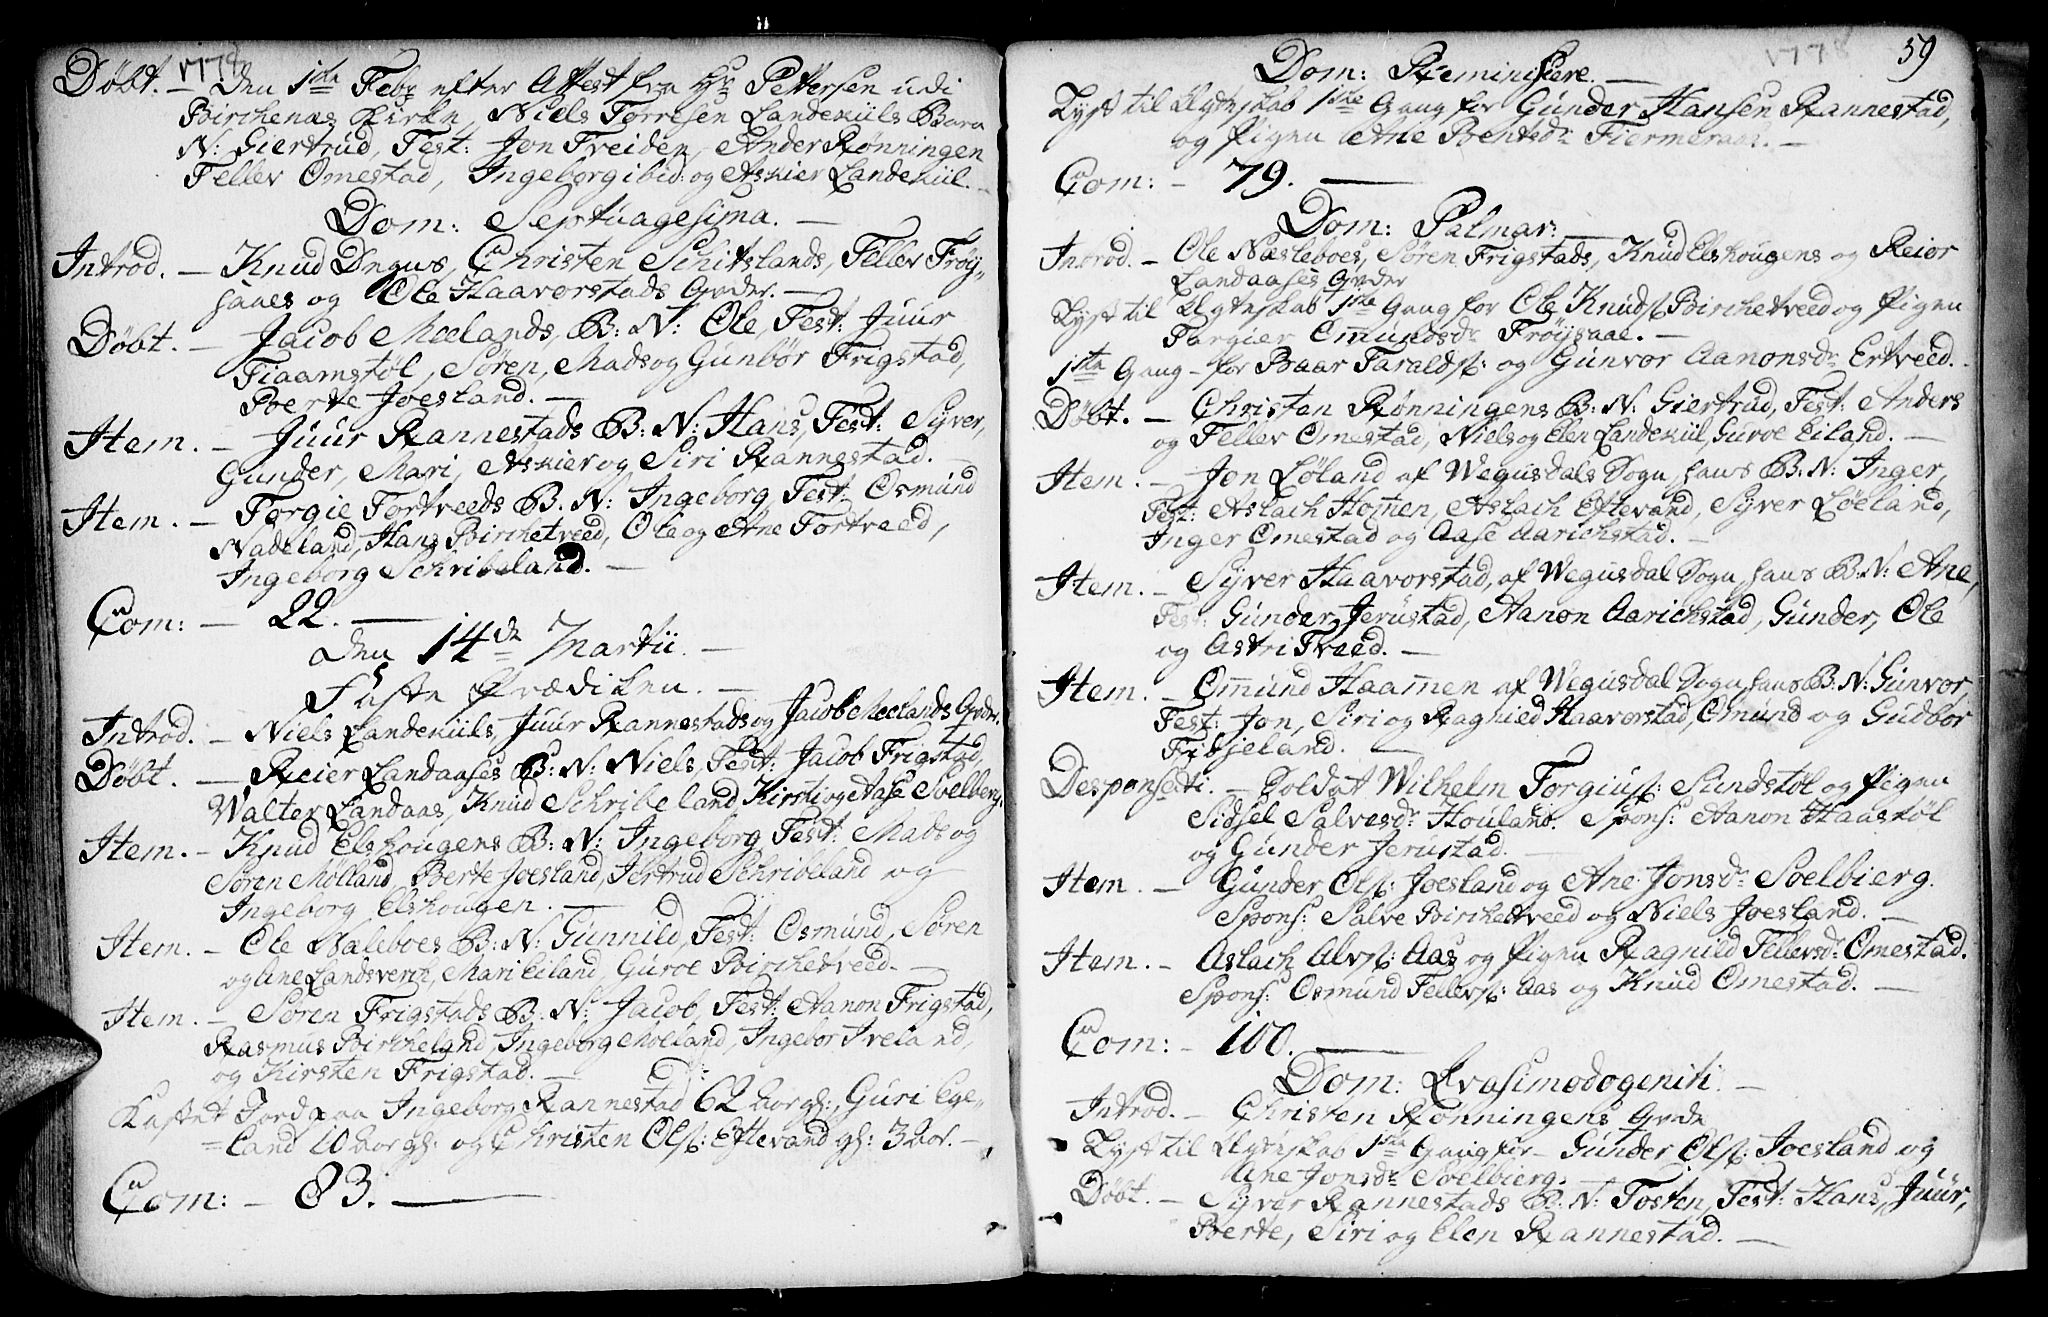 1778
Døbt. – Den 1ste Febr efter Attest fra Hr Pettersen udi
Birchenæs Kirke, Niels Torresen Landekiils Barn
N: Giertrud, Test: Jon Freiden, Ander Rønningen
Tellev Omestad, Ingeborg ibid: og Askier Landekiil. –
Dom: Septuagesima. –
Introd. – Knud Dngus, Christen Schitslands, Tellev Frøy-
saaes og Ole Haavorstads qvder. –
Døbt. – Jacob Meelands, B: N: Ole, Test: Juur
Tiaamstøl, Søren, Mads og Gunbør Frigstad,
Berte Joesland. –
Item. – Juur Rannestads B: N: Hans, Test: Syver,
Gunder, Mari, Askier og Siri Rannestad. –
Item. – Torgie Tortveeds B. N: Ingeborg, Test: Osmund
Nadeland, Hans Birchetveed, Ole og Ane Tortveed,
Ingeborg Schribeland. –
Com: – 22. –
den 14de Martii –
Faste Prædiken. –
Introd. – Niels Landekiils, Juur Rannestads og Jacob Meelands qvdr.
Døbt. – Reier Landaases B: N: Niels, Test: Jacob Frigstad,
Walter Landaas, Knud Schribeland Kirsti og Aase Soelberg.
Item. – Knud Elshougens B: N: Ingeborg, Test: Mads og
Søren Mølland, Berte Joesland, Jertrud Schribeland og
Ingeborg Elshougen. –
Item. – Ole Naleboes B: N: Gunnild, Test: Osmund, Søren
og Ane Landsverk, Mari Eiland, Guroe Birchetveed. –
Item. – Søren Frigstads B: N: Jacob, Test: Aanon Frigstad,
Rasmus Bircheland, Ingeborg Moeland, Ingebor Iveland,
og Kirsten Frigstad. –
Kastet Jord paa Ingeborg Rannestad 62 Aar gl:, Guri Ege-
=land 10 Aar gl: og Christen Ols: Eftevand gl: 3 Aar. –
Com: – 83. –
1778 59
Dom: Reminisere. –
Lyst til Egteskab 1ste Gang for Gunder Hansen Rannestad,
og Pigen Ane Bentsdr Fiermeraas. –
Com: – 79. –
Dom: Palmar: –
Introd. – Ole Næsleboes, Søren Frigstads, Knud Elshougens og Reior
Landaases qvder
Lyst til Egteskab 1ste Gang for Ole Knuds: Birchetveed og Pigen
Targier Omundsdr Frøysaae. –
1ste Gang – for Baar Taralds: og Gunvor Aanonsdr Ertveed. –
Døbt. – Christen Rønningens B: N: Giertrud, Test: Anders
og Tellev Omestad, Niels og Elen Landekiil, Guroe Eiland. –
Item. – Jon Løland af Wegusdals Sogn, hans B: N: Inger,
Test: Aslach Homen, Aslach Eftevand, Syver Løeland,
Inger Omestad og Aase Aarichstad. –
Item. – Syver Haavorstad, af Wegusdal Sogn, hans B: N: Ane,
Test: Gunder Jerustad, Aanon Aarichstad, Gunder, Ole
og Astri Tveed. –
Item. – Omund Haamen af Wegusdal Sogn, hans B: N: Gunvor,
Test: Jon, Siri og Ragnied Haavorstad, Omund og Gudbor
Fribsjeland. –
Desponsati. – Soldat Wilhelm Torgius: Sundstøl og Pigen
Sidsel Salvesdr Houland. Spons: Aanon Haastøl
og Gunder Jerustad. –
Item. – Gunder Ols: Joesland og Ane Jonsdr Soelbierg.
Spons: Salve Birchetveed og Niels Joesland. –
Item. – Aslach Alvs: Aas og Pigen Ragnild Tellevsdr Omestad.
Spons: Osmund Tellevs: Aas og Knud Omestad. –
Com: – 100. –
Dom: Qvasimodogeniti. –
Introd. – Christen Rønningens qvde
Lyst til Egteskab 1ste Gang for – Gunder Ols: Joesland og
Ane Jonsdr Soelbierg. –
Døbt. – Syver Rannestads B: N: Tosten, Test: Hans, Juur,
Berte, Siri og Elen Rannestad. –